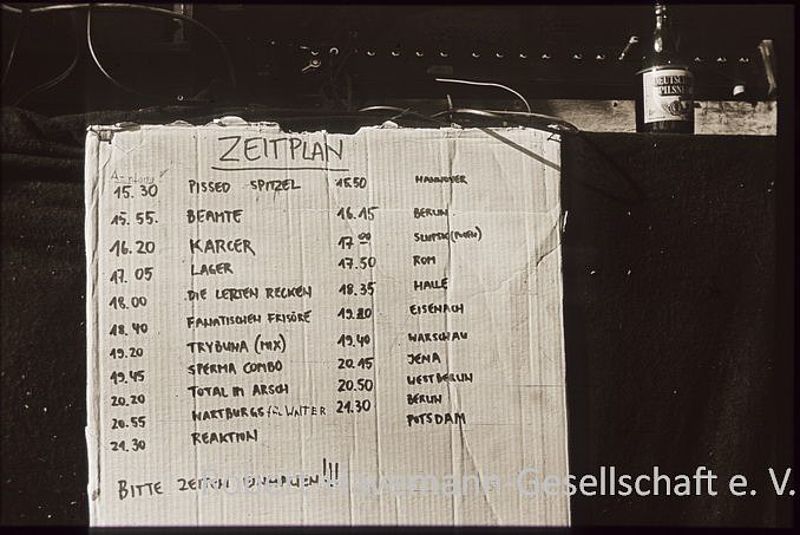 DEUTSCHES
PILSNER
ZEITPLAN
Anfang
15.30 PISSED SPITZEL 15.50 HANNOVER
15.55. BEAMTE 16.15 BERLIN
16.20 KARCER 17 00 SLUPSK (POLEN)
17.05 LAGER 17.50 ROM
18.00 DIE LETZTEN RECKEN 18.35 HALLE
18.40 FANATISCHEN FRISÖRE 19.20 EISENACH
19.20 TRYBUNA (MIX) 19.40 WARSCHAU
19.45 SPERMA COMBO 20.15 JENA
20.20 TOTAL IM ARSCH 20.50 WESTBERLIN
20.55 WARTBURGS für WALTER 21.30 BERLIN
21.30 REAKTION POTSDAM
BITTE ZEITEN EINHALTEN!!!
Robert-Havemann-Gesellschaft e. V.